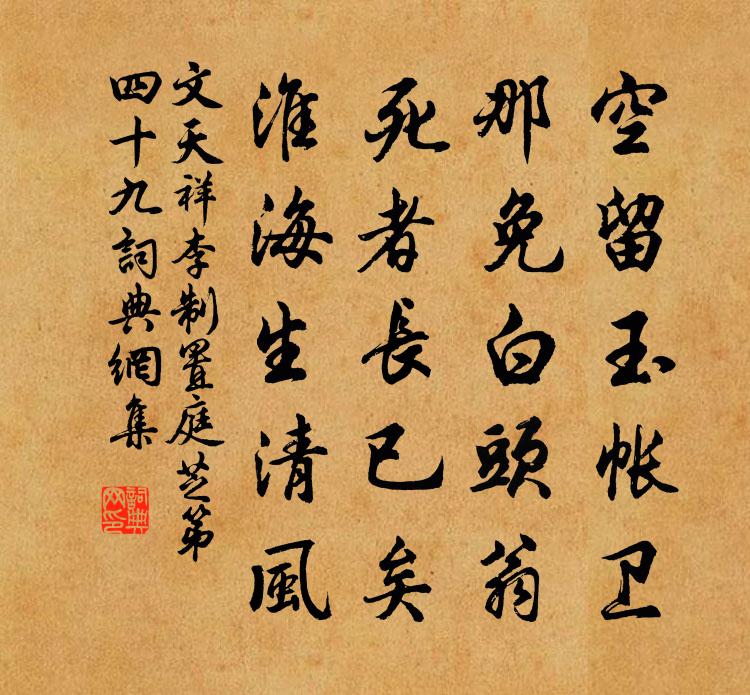 空留玉帐卫
那免白頭翁
死者長已矣
淮海生清風
文天祥李制置庭芝第
四十九詞典網集
詞典
网印